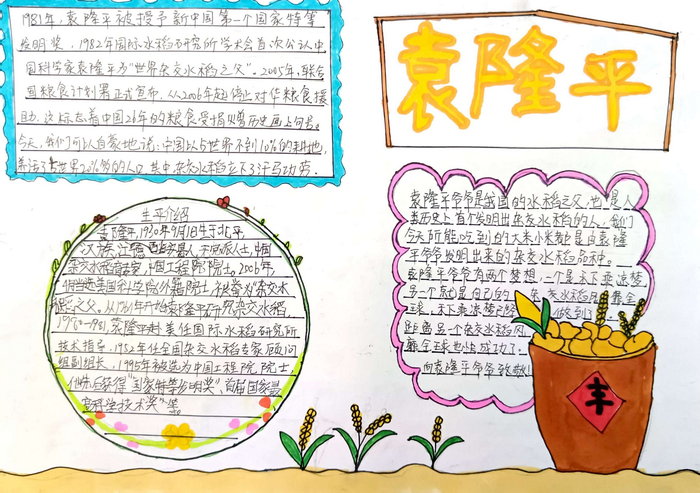 1981年,袁隆平被授予新中国第一个国家特等
发明奖,1982年国际水稻研究所学术会首次公认中
国科学家袁隆平为“世界杂交水稻之父”。2005年,联合
国粮食计划署正式宣布,从2006年起停止对华粮食援
助。这标志着中国26年的粮食受捐赠历史画上句号。
今天,我们可以自豪地说:中国以占世界不到10%的耕地,
养活了占世界20%多的人口,其中杂交水稻立下了汗马功劳。
袁隆平
生平介绍
袁隆平,1930年9月1日生于北平,
汉族,江西
杂交水稻 中国工程院院士。2006年
美国科学院外籍院士,被誉为“杂交水
稻之父。从1964年开始 杂交水稻
1980-1981,袁隆平赴美任国际水稻研究所
技术指导,1982年任全国杂交水稻专家顾问
组副组长,1995年被选为中国工程院院士,
他先后获得“国家特等发明奖”、首届国家最
高科学技术奖”等
袁隆平爷爷是我国的水稻之父,也是人
类历史上首个发明出杂交水稻的人。我们
今天所能吃到的大米小米都是由袁隆
平爷爷发明出来的杂交水稻品种。
袁隆平爷爷有两个梦想,一个是禾下乘凉梦
另一个就是自己的 杂交水稻 覆全
球,禾下乘凉梦已经 做到了,
距离另一个杂交水稻
覆全球也 成功了。
向袁隆平爷爷致敬!
丰